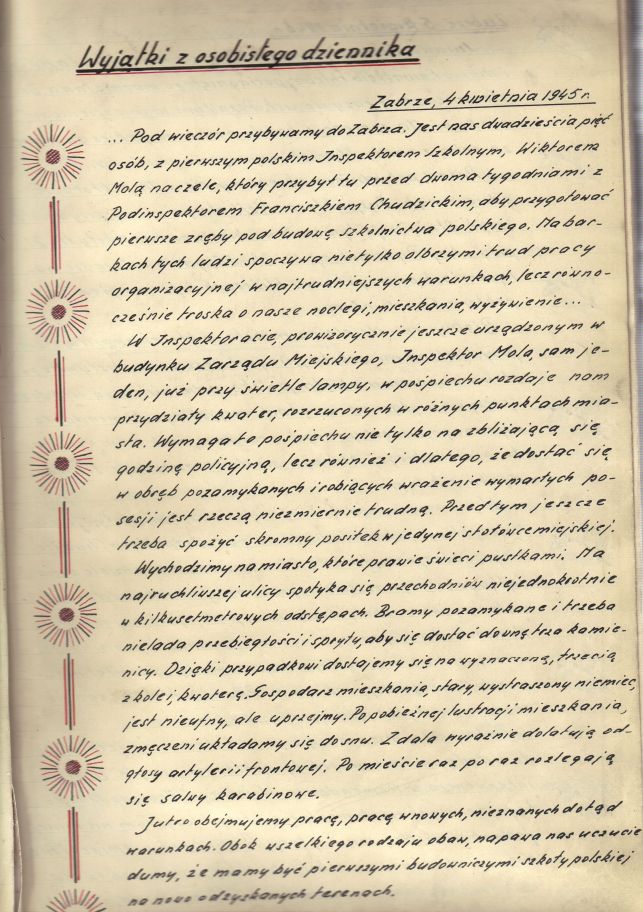 Wyjątki z osobistego dziennika
Zabrze, 4 kwietnia 1945 r.
... Pod wieczór przybywamy do Zabrza. Jest nas dwadzieścia pięć
osób, z pierwszym polskim Inspektorem Szkolnym, Wiktorem
Molą na czele, który przybył tu przed dwoma tygodniami z
Podinspektorem Franciszkiem Chudzickim, aby przygotować
pierwsze zręby pod budowę szkolnictwa polskiego. Na bar-
kach tych ludzi spoczywa nietylko olbrzymi trud pracy
organizacyjnej w najtrudniejszych warunkach, lecz równo-
cześnie troska o nasze noclegi, mieszkania, wyżywienie...
W Inspektoracie, prowizorycznie jeszcze urządzonym w
budynku Zarządu Miejskiego, Inspektor Mola, sam je-
den, już przy świetle lampy, w pośpiechu rozdaje nam
przydziały kwater, rozrzuconych w różnych punktach mia-
sta. Wymaga to pośpiechu nie tylko na zbliżającą się
godzinę policyjną, lecz również i dlatego, że dostać się
w obręb pozamykanych i robiących wrażenie wymarłych po-
sesji jest rzeczą niezmiernie trudną. Przed tym jeszcze
trzeba spożyć skromny posiłek w jedynej stołówce miejskiej.
Wychodzimy na miasto, które prawie świeci pustkami. Na
najruchliwszej ulicy spotyka się przechodniów niejednokrotnie
w kilkusetmetrowych odstępach. Bramy pozamykane i trzeba
nielada przebiegłości i sprytu, aby się dostać do wnętrza kamie-
nicy. Dzięki przypadkowi dostajemy się na wyznaczoną, trzecią
z kolei, kwaterę. Gospodarz mieszkania, stary, wystraszony niemiec,
jest nieufny, ale uprzejmy. Po pobieżnej lustracji mieszkania,
zmęczeni układamy się do snu. Z dala wyraźnie dolatują od-
głosy artylerii frontowej. Po mieście raz po raz rozlegają
się salwy karabinowe.
Jutro obejmujemy pracę, pracę w nowych, nieznanych dotąd
warunkach. Obok wszelkiego rodzaju obaw, napawa nas uczucie
dumy, że mamy być pierwszymi budowniczymi szkoły polskiej
na nowo odzyskanych terenach.